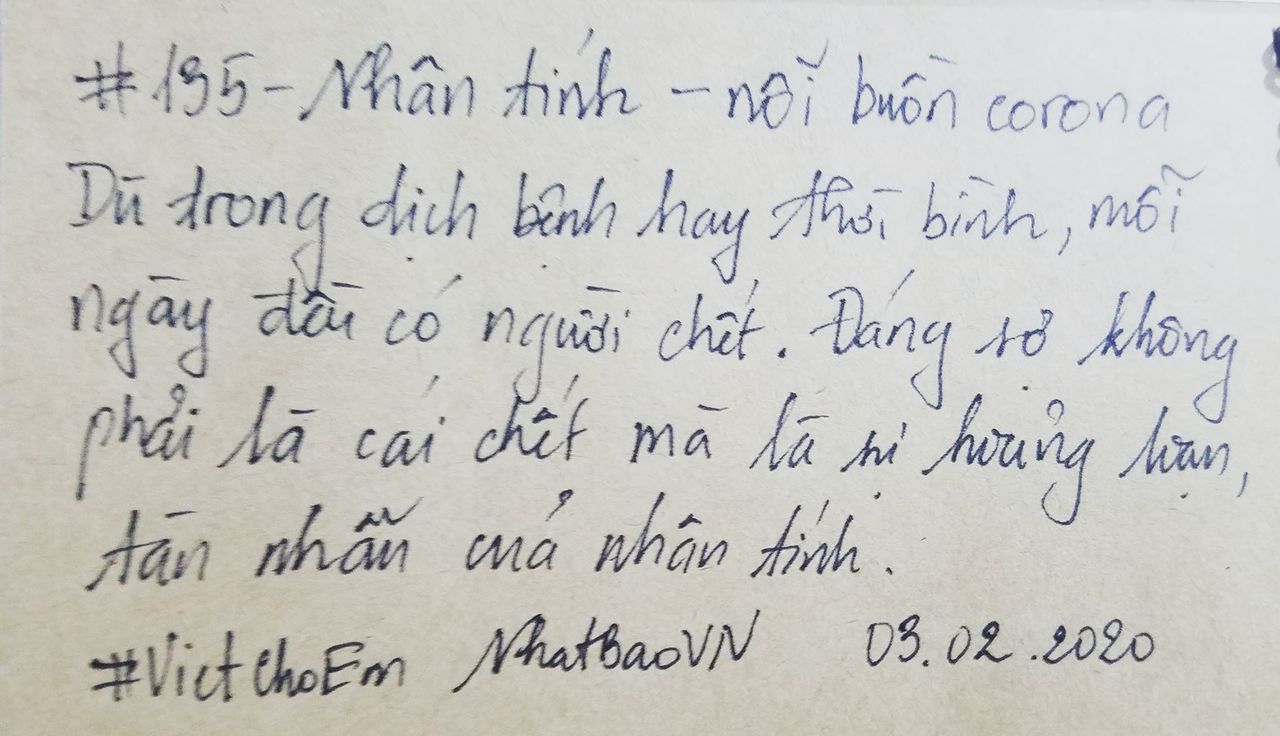 #195 - Nhân tính - nỗi buồn corona
Dù trong dịch bệnh hay thời bình, mỗi
ngày đều có người chết. Đáng sợ không
phải là cái chết mà là sự hoảng loạn,
tàn nhẫn của nhân tính.
#VietChoEm NhatBaoVN 03.02.2020